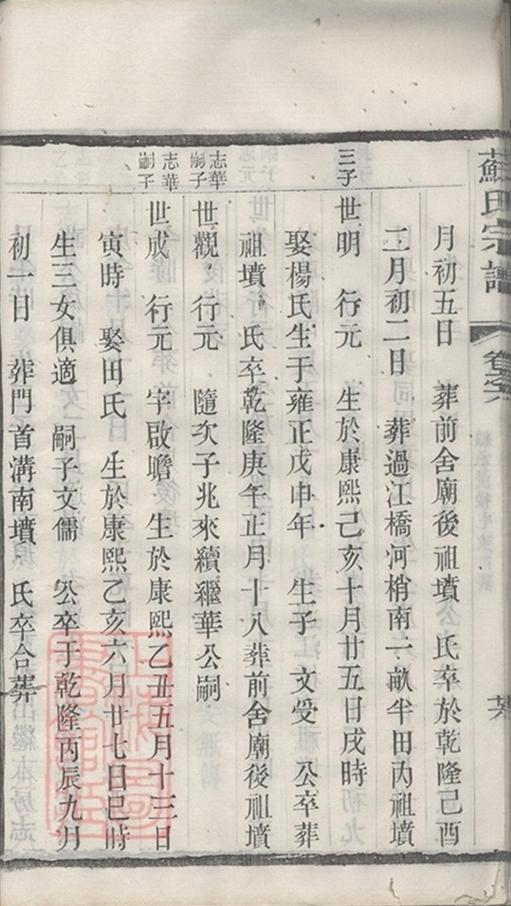 蘇氏宗譜
卷之六
月初五日 葬前舍廟後祖墳 氏卒於乾隆己酉
二月初二日 葬過江橋河梢南二畝半田內祖墳
三子
世明 行元 生於康熙己亥十月廿五日戌時
娶楊氏生于雍正戊申年 生子 文受 公卒葬
祖墳 氏卒乾隆庚午正月十八葬前舍廟後祖墳
志華嗣子
世觀 行元 隨次子兆來續繼華公嗣
志華嗣子
世成 行元 字啟瞻 生於康熙乙丑五月十三日
寅時 娶田氏 生於康熙乙亥六月廿七日巳時
生三女俱適 嗣子文儒 公卒于乾隆丙辰九月
初一日 葬門首溝南墳 氏卒合葬